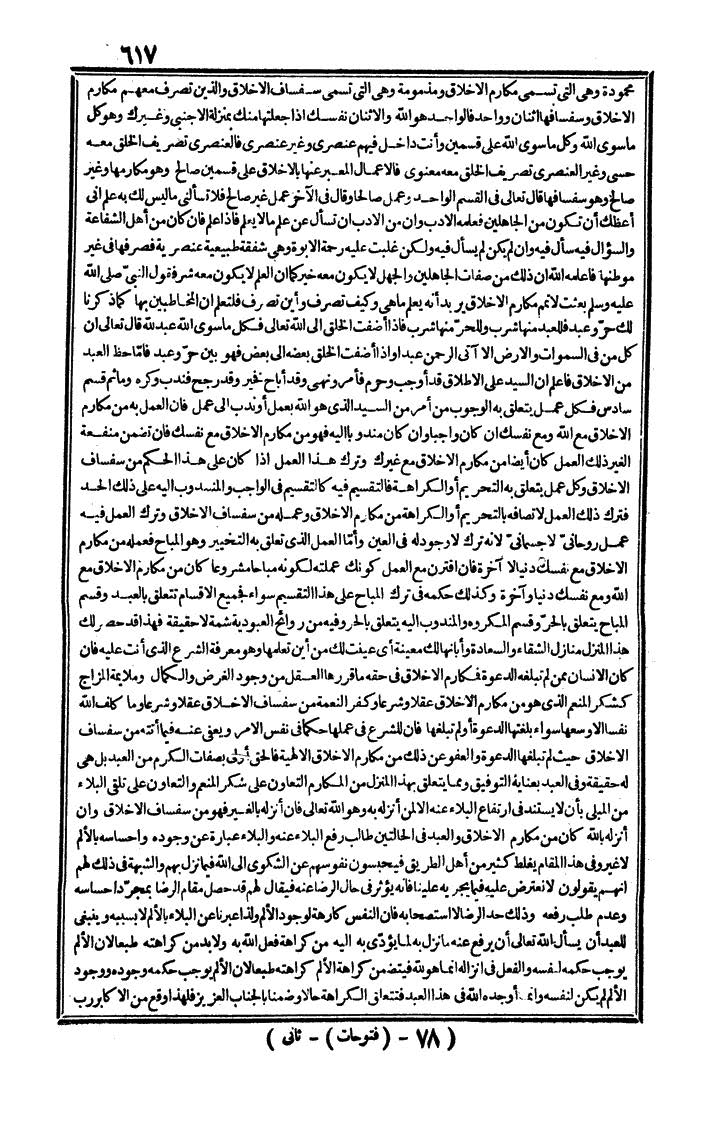 ٦١٧
محمودة وهى التى تسمى مكارم الاخلاق ومذمومة وهى التى تسمى سفساف الاخلاق والذين تصرف معهم مكارم
الاخلاق وسفسافها اثنان وواحد فالواحد هو الله والاثنان نفسك اذا جعلتها منك بمنزلة الاجنبى وغيرك وهو كل
ماسوى الله وكل ماسوى الله على قسمين وأنت داخل فيهم عنصرى وغير عنصرى فالعنصرى تصريف الخلق معه
حسى وغير العنصرى تصريف الخلق معه معنوى فالاعمال المعبر عنها بالاخلاق على قسمين صالح وهو مكارمها وغير
صالح وهو سفسافها قال تعالى فى القسم الواحد وعمل صالحا وقال فى الآخر عمل غير صالح فلا تسألنى ماليس لك به علم انى
أعظك أن تكون من الجاهلين فعلمه الادب وان من الادب ان تسأل عن علم مالا يعلم فاذا علم فان كان من أهل الشفاعة
والسؤال فيه سأل فيه وان لم يكن لم يسأل فيه ولكن غلبت عليه رحمة الابوة وهى شفقة طبيعية عنصرية فصرفها فى غير
موطنها فاعلمه الله ان ذلك من صفات الجاهلين والجهل لا يكون معه خير كما ان العلم لا يكون معه شر فتقول النبىّ صلى الله
عليه وسلم بعثت لاتمم مكارم الاخلاق يريد أنه يعلم ماهى وكيف تصرف وأين تصرف فلتعلم ان المخاطبين بها كما ذكرنا
لك حرّ وعبد فللعبد منها شرب وللحرّ منها شرب فاذا أضفت الخلق الى الله تعالى فكل ماسوى الله عبد لله قال تعالى ان
كل من فى السموات والارض الا آتى الرحمن عبدا واذا أضفت الخلق بعضه الى بعض فهو بين حرّ وعبد فاما حظ العبد
من الاخلاق فاعلم ان السيد على الاطلاق قد أوجب وحرم فأمر ونهى وقد أباح فخير وقد رجح فندب وكره وماثم قسم
سادس فكل عمل يتعلق به الوجوب من أمر من السيد الذى هو الله بعمل أو ندب الى عمل فان العمل به من مكارم
الاخلاق مع الله ومع نفسك ان كان واجبا وان كان مندوبا اليه فهو من مكارم الاخلاق مع نفسك فان تضمن منفعة
الغير ذلك العمل كان أيضا من مكارم الاخلاق مع غيرك وترك هذا العمل اذا كان على هذا الحكم من سفساف
الاخلاق وكل عمل يتعلق به التحريم أو الكراهة فالتقسيم فيه كالتقسيم فى الواجب والمندوب اليه على ذلك الحد
فترك ذلك العمل لاتصافه بالتحريم أو الكراهة من مكارم الاخلاق وعمله من سفساف الاخلاق وترك العمل فيه
عمل روحانىّ لا جسمانىّ لانه ترك لا وجود له فى العين وأما العمل الذى تعلق به التخيير وهو المباح فعمله من مكارم
الاخلاق مع نفسك دنيا لا آخرة فان اقترن مع العمل كونك عملته لكونه مباحا مشروعا كان من مكارم الاخلاق مع
الله ومع نفسك دنيا وآخرة وكذلك حكمه فى ترك المباح على هذا التقسيم سواء فجميع الاقسام تتعلق بالعبد وقسم
المباح يتعلق بالحرّ وقسم المكروه والمندوب اليه يتعلق بالحر وفيه من روائح العبودية شمة لا حقيقة فهذا قد حصر لك
هذا المنزل منازل الشقاء والسعادة وأبانها لك معينة أى عينت لك من أين تعلمها وهو معرفة الشرع الذى أنت عليه فان
كان الانسان ممن لم تبلغه الدعوة فمكارم الاخلاق فى حقه ماقررها العقل من وجود الغرض والكمال وملايمة المزاج
كشكر المنعم الذى هو من مكارم الاخلاق عقلا وشرعا وكفر النعمة من سفساف الاخلاق عقلا وشرعا وما كلف الله
نفسا الا وسعها سواء بلغتها الدعوة أو لم تبلغها فان للشرع فى عملها حكما فى نفس الامر ويعفى عنه فيما أتته من سفساف
الاخلاق حيث لم تبلغها الدعوة والعفو عن ذلك من مكارم الاخلاق الالهية فالحق أولى بصفات الكرم من العبد بل هى
له حقيقة وفى العبد بعناية التوفيق ومما يتعلق بهذا المنزل من المكارم التعاون على شكر المنعم والتعاون على تلقى البلاء
من المبلى بأن لا يستند فى ارتفاع البلاء عنه الا لمن أنزله به وهو الله تعالى فان أنزله بالغير فهو من سفساف الاخلاق وان
أنزله بالله كان من مكارم الاخلاق والعبد فى الحالتين طالب رفع البلاء عنه والبلاء عبارة عن وجوده واحساسه بالألم
لا غير وفى هذا المقام يغلط كثير من أهل الطريق فيحبسون نفوسهم عن الشكوى الى الله فيما نزل بهم والشبهة فى ذلك لهم
انهم يقولون لا نعترض عليه فيما يجريه علينا فانه يؤثر فى حال الرضا عنه فيقال لهم قد حصل مقام الرضا بمجرّد احساسه
وعدم طلب رفعه وذلك حد الرضا لا استصحابه فان النفس كارهة لوجود الألم ولذا عبرنا عن البلاء بالألم لا بسببه وينبغى
للعبد أن يسأل الله تعالى أن يرفع عنه مانزل به لما يؤدّى به اليه من كراهة فعل الله به ولابد من كراهته طبعا لان الألم
يوجب حكمه لنفسه والفعل فى انزاله انما هو لله فيتضمن كراهة الألم كراهته طبعا لان الألم يوجب حكمه وجوده ووجود
الألم لم يكن لنفسه وانما أوجده الله فى هذا العبد فتتعلق الكراهة حالا وضمنا بالجناب العزيز فلهذا وقع من الاكابر رب
( ٧٨ - (فتوحات) - ثانى )